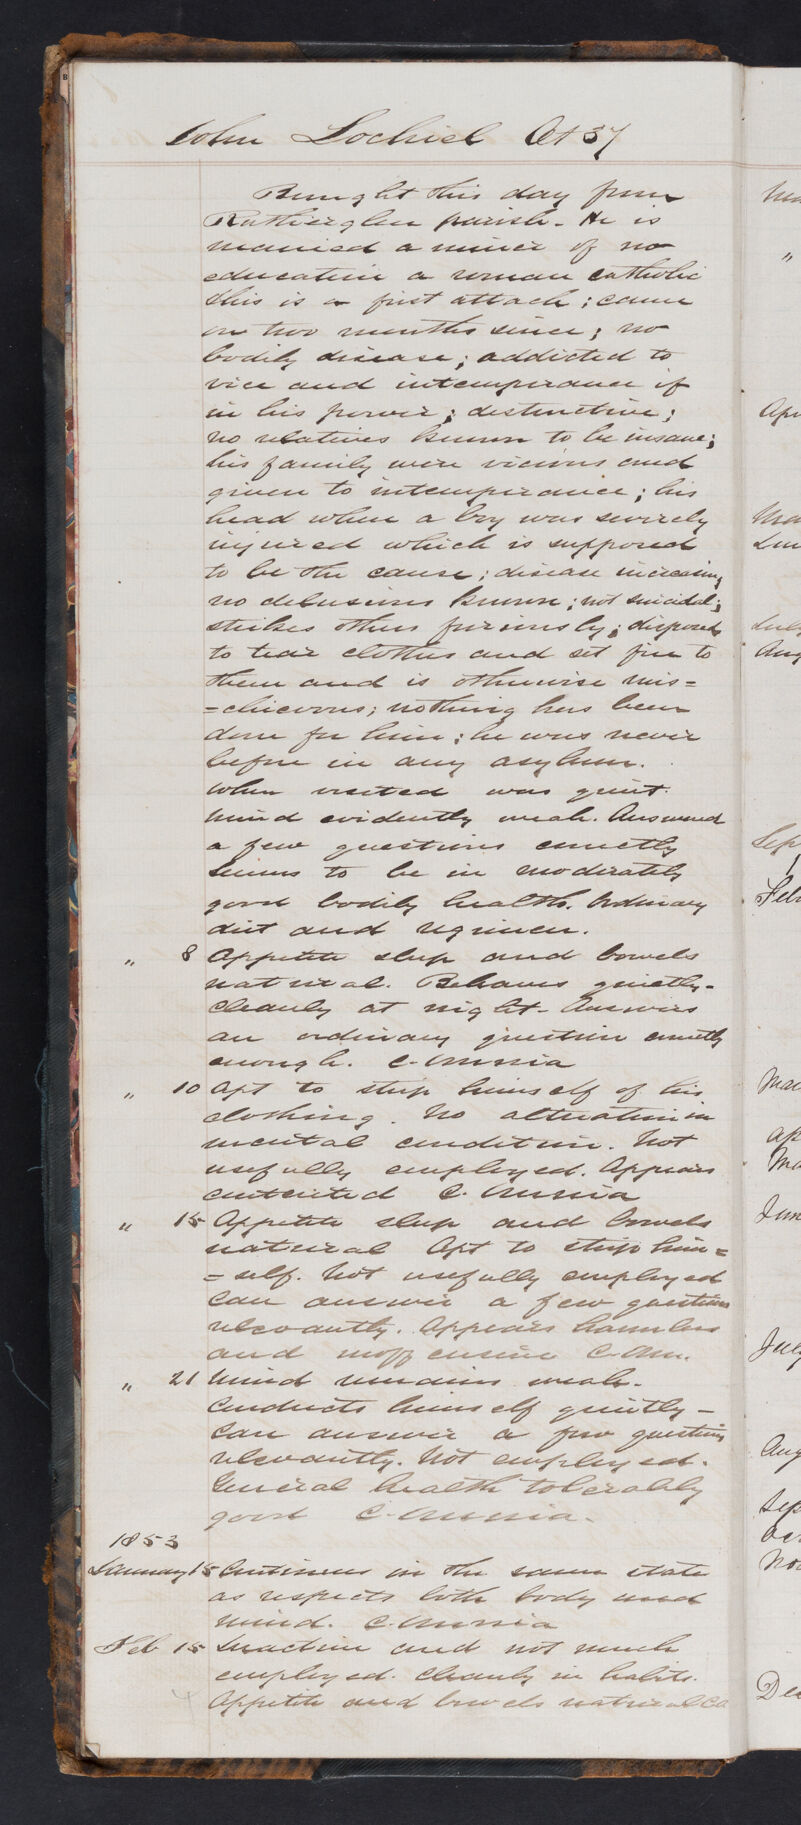 John Lochiel Æt 37
Brought this day from
Rutherglen parish. He is
married a miner of no
education a roman catholic
this is a first attack; came
on two months since; no
bodily disease; addicted to
vice and intemperance if
in his power; destructive;
no relatives known to be insane;
his family were vicious and
given to intemperance; his
head when a boy was severely
injured which is supposed
to be the cause; disease increasing
no delusions known; not suicidal;
strikes others furiously; disposed
to tear clothes and set fire to
them and is otherwise mis=
=chievous; nothing has been
done for him; he was never
before in any asylum.
When visited was quiet.
Mind evidently weak. Answered
a few questions correctly
Seems to be in moderately
good bodily health. Ordinary
diet and regimen.
" 8 Appetite sleep and bowels
natural. Behaves quietly-
cleanly at night- Answers
an ordinary question correctly
enough. C. Omnia
" 10 Apt to strip himself of his
clothing. No alteration in
mental condition. Not
usefully employed. Appears
contented C. Omnia
" 15 Appetite sleep and bowels
natural Apt to strip him=
=self. Not usefully employed
Can answer a few questions
relevantly. Appears harmless
and inoffensive C. Om.
" 21 Mind remains weak.
Conducts himself quietly-
Can answer a few questions
relevantly. Not employed.
General health tolerably
good C. Omnia.
1853
January 15 Continues in the same state
as respects both body and
mind. C. Omnia
Feb 15 Inactive and not much
employed. Cleanly in habits.
Appetite and bowels natural CO